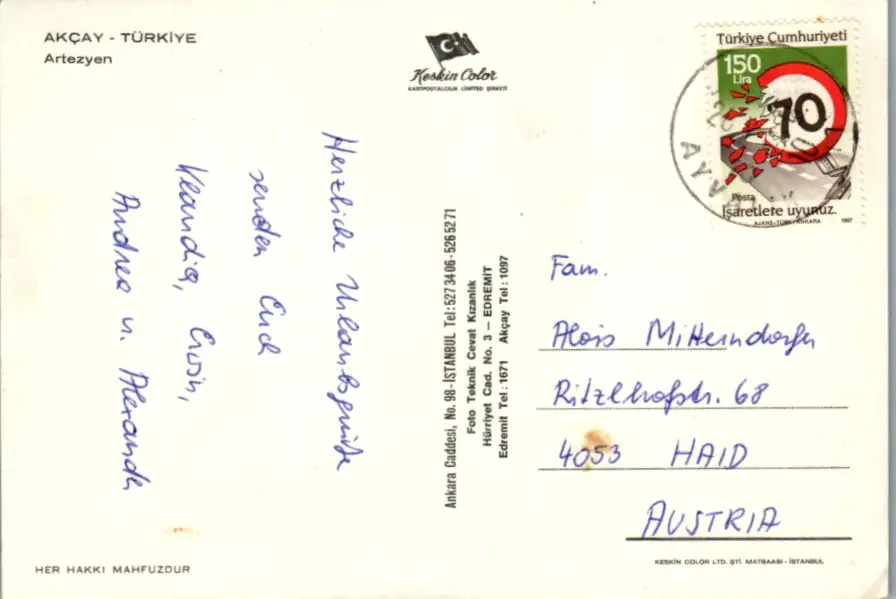 AKÇAY - TÜRKİYE
Artezyen
Keskin Color
KARTPOSTALCILIK LİMİTED ŞİRKETİ
Türkiye Cumhuriyeti
150
Lira
70
Posta
İşaretlere uyunuz.
AJANS-TÜRK/ANKARA 1987
AYVA
Herzliche Urlaubsgrüße
senden Euch
Klaudia, Erwin,
Andrea u. Alexander
Ankara Caddesi, No. 98-İSTANBUL Tel:527 34 06-526 52 71
Foto Teknik Cevat Kızanlık
Hürriyet Cad. No. 3 — EDREMİT
Edremit Tel:1671 Akçay Tel:1097
Fam.
Alois Mitterndorfer
Ritzlhofstr. 68
4053 HAID
AUSTRIA
HER HAKKI MAHFUZDUR
KESKİN COLOR LTD. ŞTİ. MATBAASI - İSTANBUL